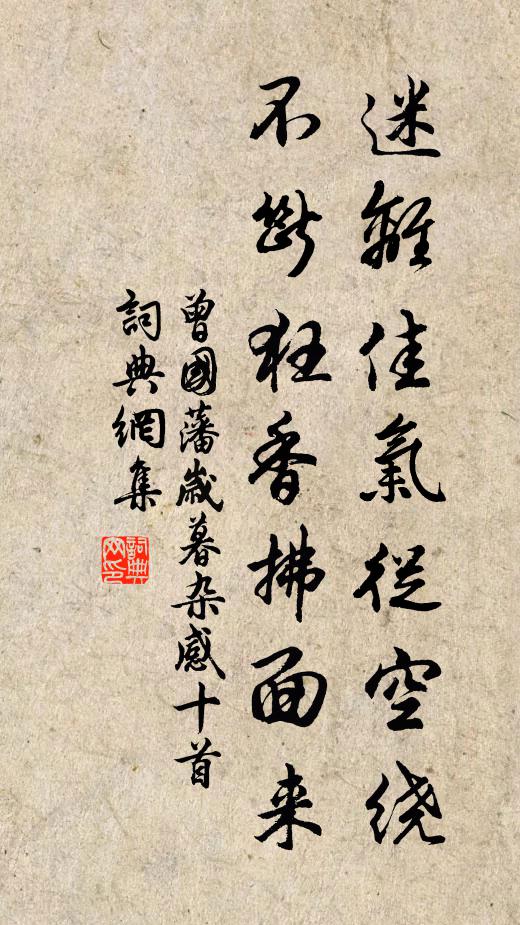 迷離佳氣從空绕
不斷狂香拂面来
曾國藩歲暮杂感十首
詞典網集
詞典网印